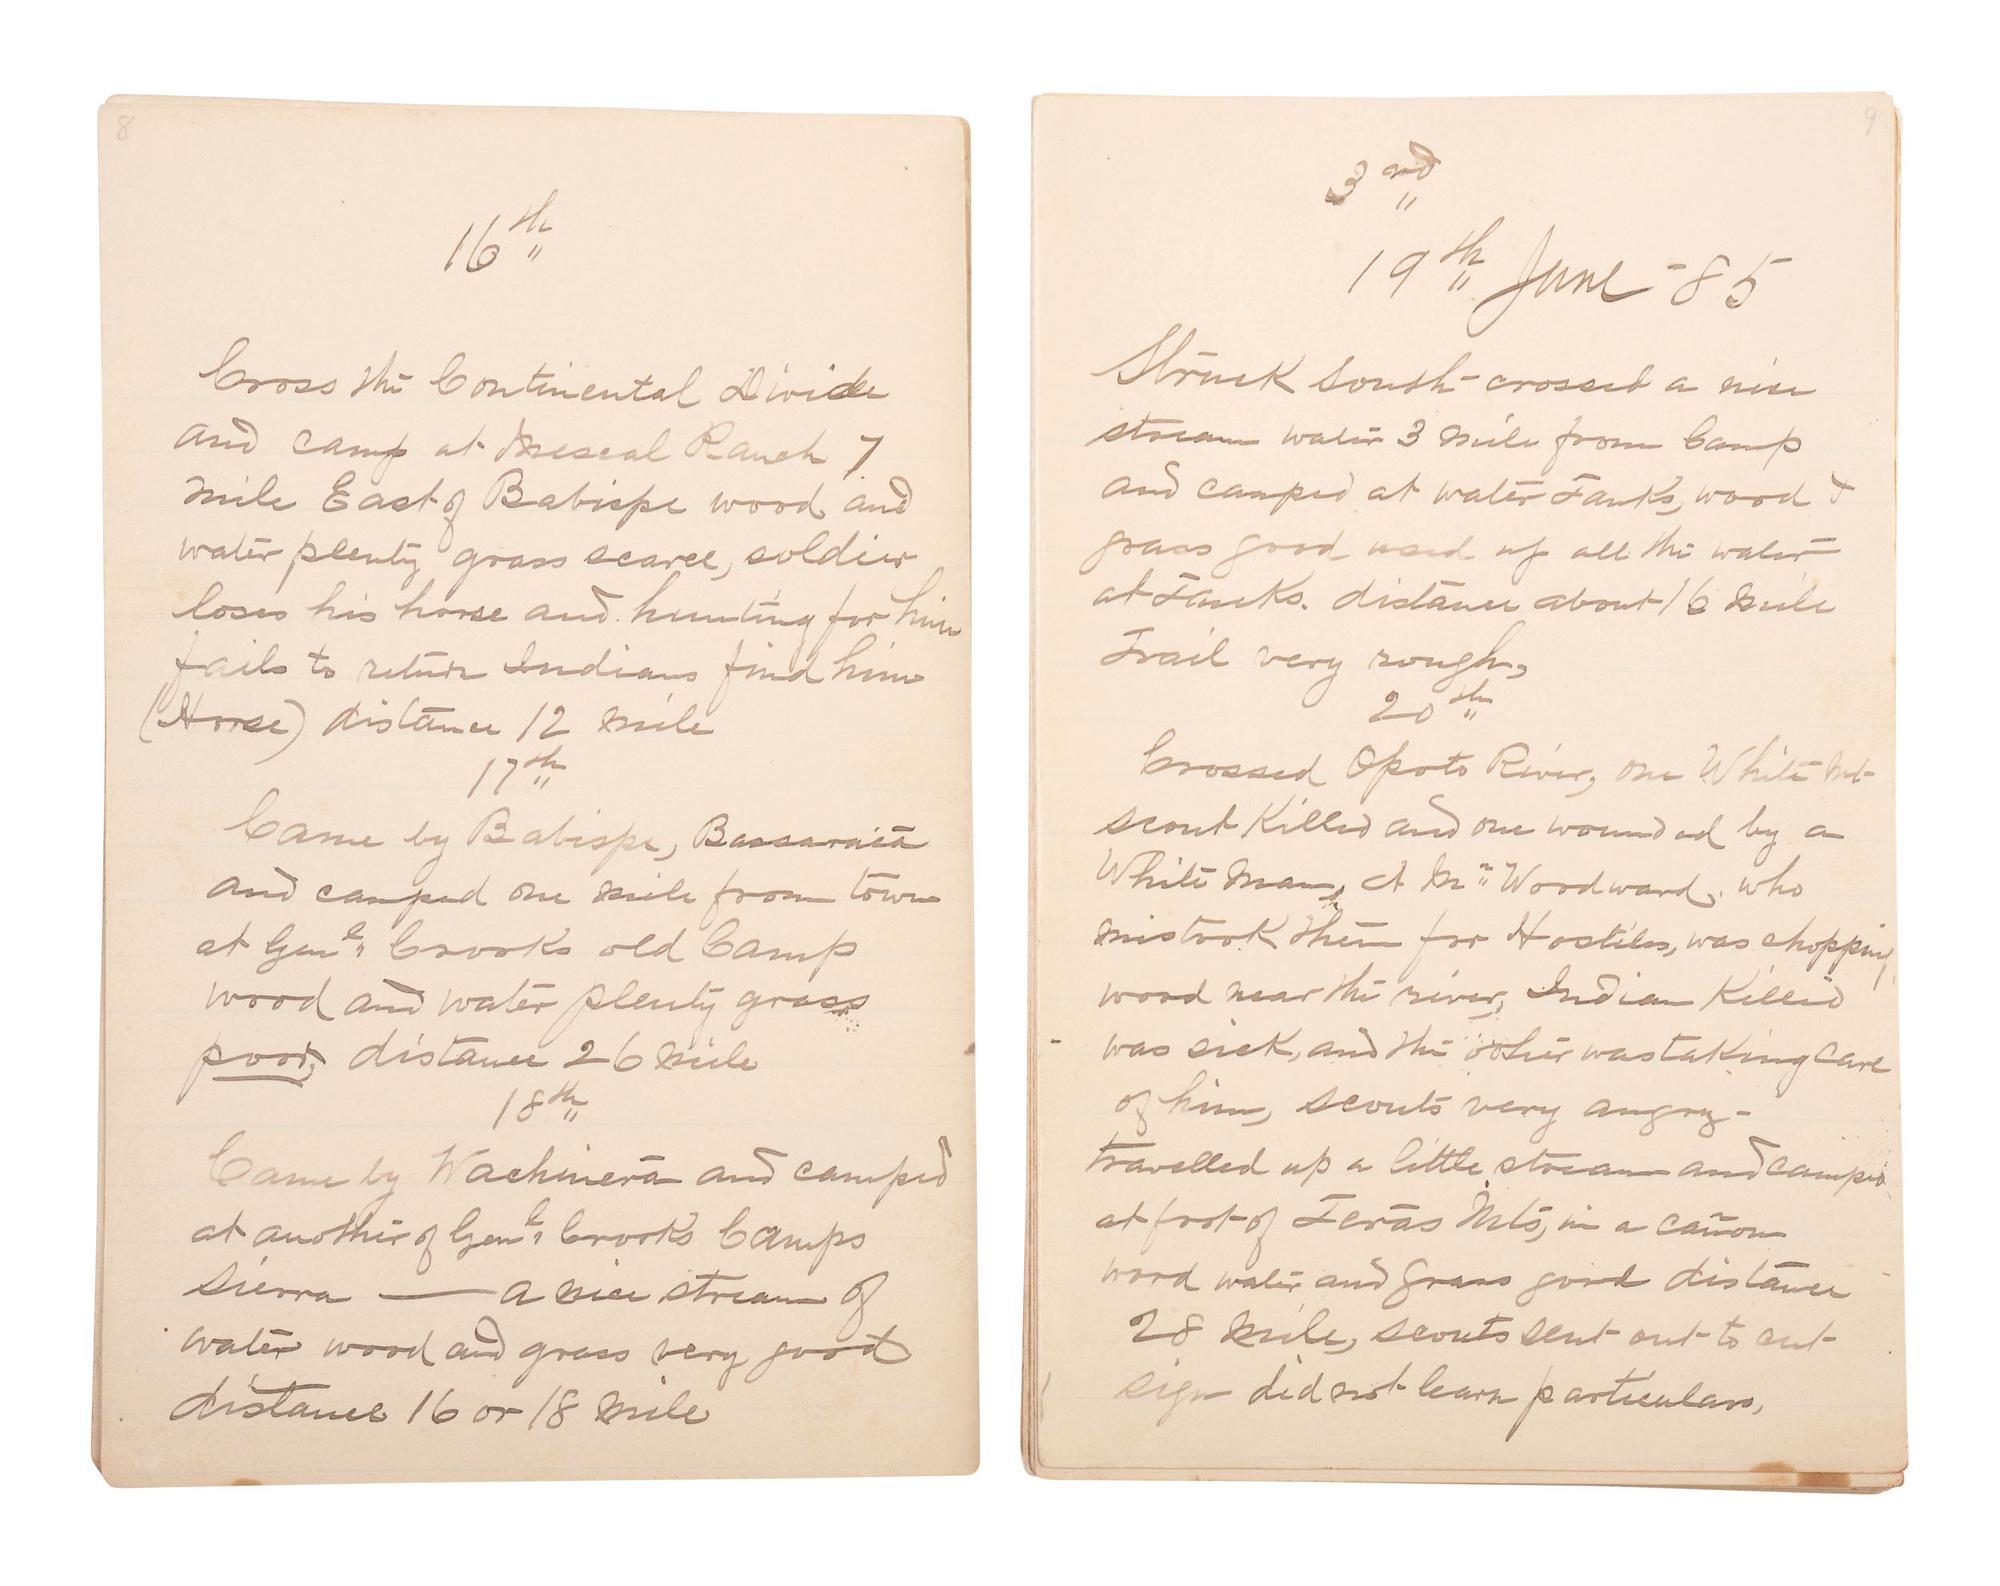 8
16th
Cross the Continental Divide
and camp at Mescal Ranch 7
mile East of Babispe wood and
water plenty grass scarce, soldier
loses his horse and hunting for him
fails to return Indians find him
(Horse) distance 12 mile
17th
Came by Babispe, Bassaraca
and camped one mile from town
at Genl Crooks old Camp
wood and water plenty grass
poor, distance 26 mile
18th
Came by Wachinera and camped
at another of Genl Crooks Camps
sierra — a nice stream of
water wood and grass very good
distance 16 or 18 mile
9
3nd
19th June -85
Struck South - crossed a nice
stream water 3 mile from Camp
and camped at water Tanks, wood &
grass good used up all the water
at Tanks. distance about 16 mile
Trail very rough,
20th
Crossed Opoto River, one White Mt
scout Killed and one wounded by a
White Man, a Mr Woodward, who
mistook them for Hostiles, was chopping
wood near the river, Indian Killed
was sick, and the other was taking care
of him, scouts very angry -
travelled up a little stream and camped
at foot of Teras Mts, in a cañon
wood water and grass good distance
28 mile, scouts sent out to cut
sign did not learn particulars,